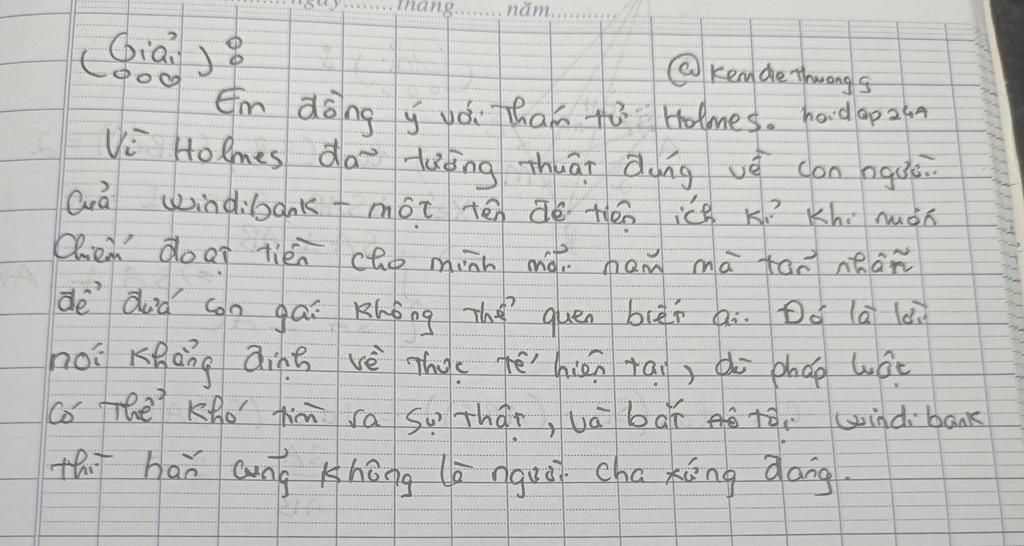 ngày........tháng........năm............
(Giải) :
@ Kemdethuong5
Em đồng ý với Thám tử Holmes. hoidap247
Vì Holmes đã tường thuật đúng về con người
của windibank - một tên đê tiện ích kỉ khi muốn
chiếm đoạt tiền cho mình mỗi năm mà tàn nhẫn
để đứa con gái không thể quen biết ai. Đó là lời
nói khẳng định về thực tế hiện tại, dù pháp luật
có thể khó tìm ra sự thật, và bắt tội windibank
thì hắn cũng không là người cha xứng đáng.